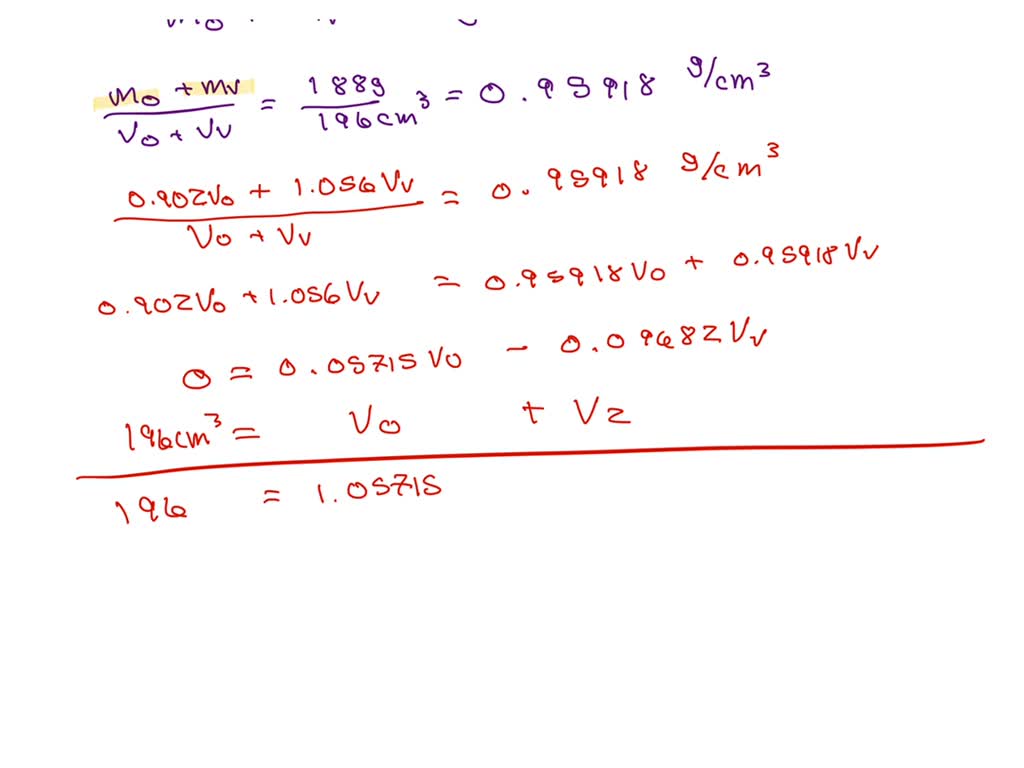 mo + mv / Vo + Vv = 188g / 196cm³ = 0.95918 g/cm³
0.902Vo + 1.056Vv / Vo + Vv = 0.95918 g/cm³
0.902Vo + 1.056Vv = 0.95918Vo + 0.95918Vv
0 = 0.05715Vo - 0.09682Vv
196cm³ = Vo + V2
196 = 1.05715